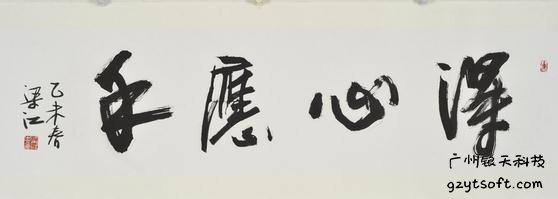 得心應手
乙未春
梁江
广州银天科技
gzytsoft.com